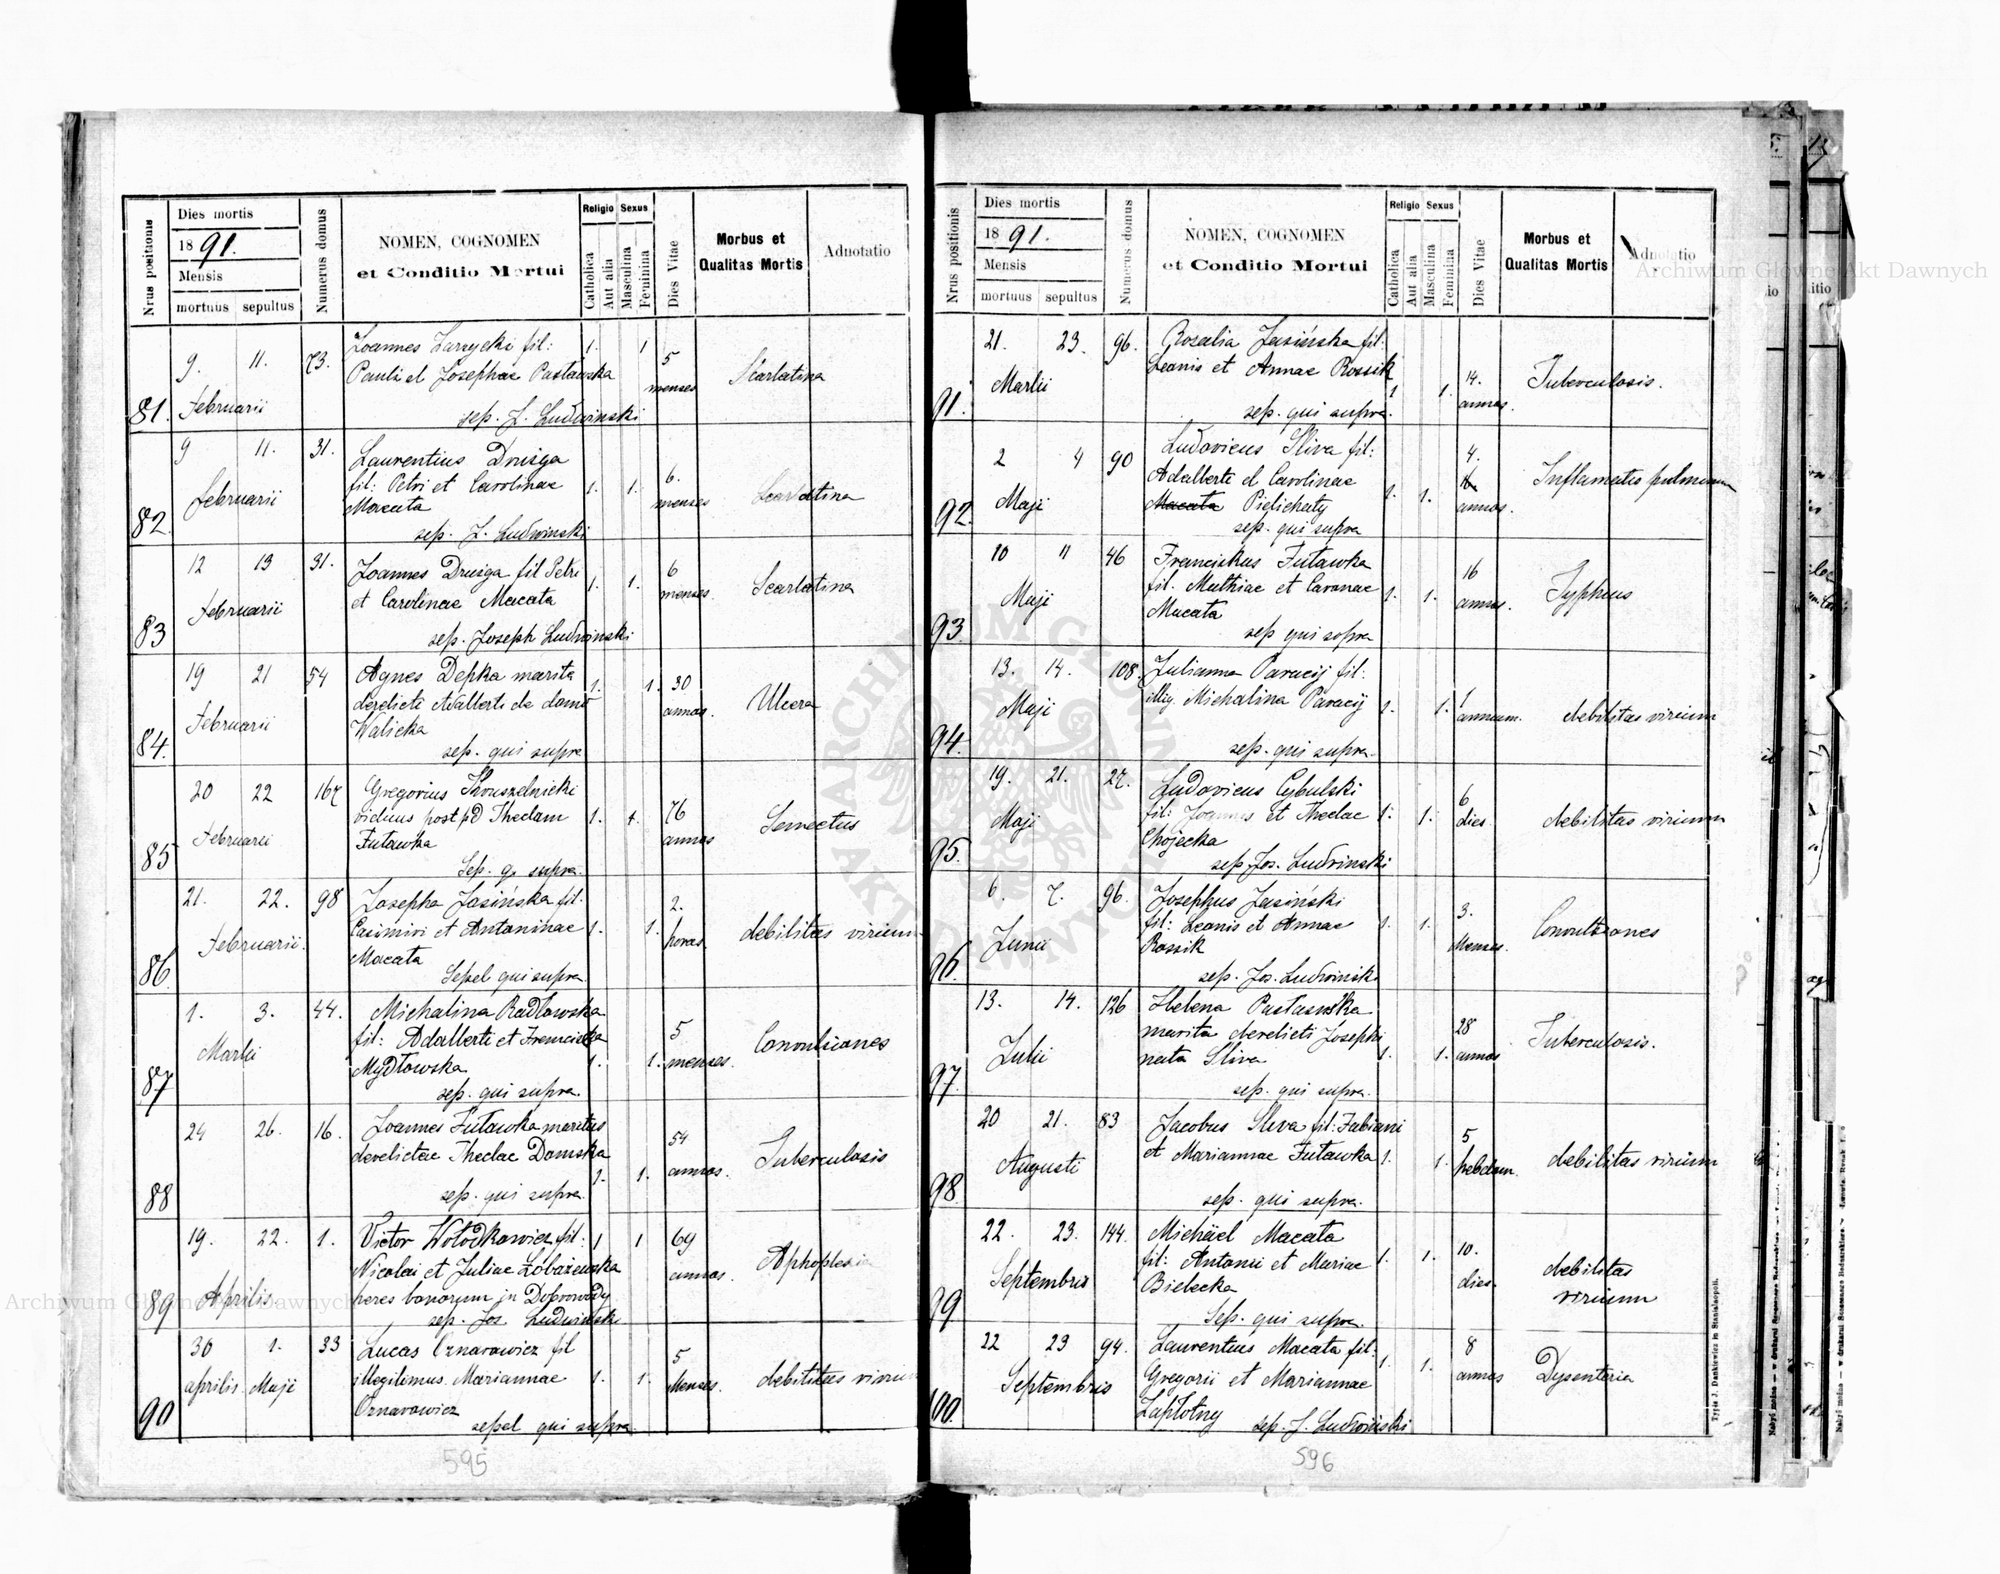 Archiwum Główne Akt Dawnych
Nrus positionis
Dies mortis
1891.
Mensis
mortuus sepultus
Numerus domus
NOMEN, COGNOMEN
et Conditio Mortui
Religio Sexus
Catholica
Aut alia
Masculina
Feminina
Dies Vitae
Morbus et
Qualitas Mortis
Adnotatio
81. 9. 11. 73. Februarii
Joannes Zarzycki fil:
Pauli et Josephae Pastawska
sep. J. Ludwinski
1. 1 5 menses Scarlatina
82. 9 11. 31. Februarii
Laurentius Druiga
fil: Petri et Carolinae
Macata
sep. J. Ludwinski
1. 1. 6. menses Scarlatina
83 12 13 31. Februarii
Joannes Druiga fil Petri
et Carolinae Macata
sep. Joseph Ludwinski
1. 1. 6 menses. Scarlatina
84. 19 21 54 Februarii
Agnes Depka marita
derelicti Adalberti de domo
Walicka
sep. qui supra
1. 1. 30 annos. Ulcera
85 20 22 167 Februarii
Gregorius
viduus post Theclam
Futawka
Sep. q. supra.
1. 1. 76 annos Senectus
86 21. 22. 98 Februarii.
Josepha Jasińska fil.
Casimiri et Antoninae
Macata
Sepel qui supra
1. 1. 2. horas debilitas virium
87 1. 3. 44. Martii
Michalina Radłowska
fil: Adalberti et Francisca
Mydłowska
sep. qui supra.
1. 1. 5 menses. Convulsiones
88 24 26. 16.
Joannes Futawka maritus
derelictae Theclae Domska
sep. qui supra.
1. 1. 54 annos. Tuberculosis
89 19. 22. 1. Aprilis
Victor Wołodkowicz fil:
Nicolai et Juliae
heres bonorum in Dobrowody
sep. Jos. Ludwinski
1 1 69 annos. Aphoplexia
90 30 1. 33 aprilis. Maji
Lucas Oznarowicz fil
illegitimus. Mariannae
Oznarowicz
sepel qui supra
1. 1. 5 Menses. debilitas virium
595
Nrus positionis
Dies mortis
1891.
Mensis
mortuus sepultus
Numerus domus
NOMEN, COGNOMEN
et Conditio Mortui
Religio Sexus
Catholica
Aut alia
Masculina
Feminina
Dies Vitae
Morbus et
Qualitas Mortis
Adnotatio
Archiwum Główne Akt Dawnych
91. 21. 23. 96. Martii
Rosalia Jasińska fil:
Leonis et Annae Rossik
sep. qui supra.
1 1. 14. annos. Tuberculosis.
92. 2 4 90 Maji
Ludovicus Sliva fil:
Adalberti et Carolinae
Macata Pielichaty
sep. qui supra
1. 1. 4. annos. Inflamatio pulmonum
93 10 11 46 Maji
Franciskus Futawka
fil. Mathiae et
Macata
sep qui sopra
1. 1. 16 annos. Typhus
94. 13. 14. 108. Maji
Julianna Paracij fil:
illig. Michalina Paracij
sep. qui supra.
1. 1. 1 annum. debilitas virium
95. 19. 21. 27. Maji
Ludovicus Cybulski
fil: Joannis et Theclae
Chojecka
sep. Jos. Ludvinski
1. 1. 6 dies debilitas virium
96 6. 7. 96. Junii
Josephus Jasiński
fil: Leonis et Annae
Rossik
sep. Jos. Ludwinski
1. 1. 3. Menses. Convulsiones
97. 13. 14. 126 Julii
Helena Pastawska
marita derelicti Josephi
nata Sliva
sep. qui supra.
1. 1. 28 annos Tuberculosis.
98. 20 21. 83 Augusti
Jacobus Sliva fil: Fabiani
et Mariannae Futawka
sep. qui supra.
1. 1. 5 hebdom. debilitas virium
99 22. 23. 144. Septembris
Michäel Macata
fil: Antonii et Mariae
Bielecka
Sep. qui supra.
1. 1. 10. dies. debilitas
virium
100. 22 23 94. Septembris
Laurentius Macata fil:
Gregorii et Mariannae
Zapłotny
sep. J. Ludwinski
1. 1. 8 annos Dysenteria
596
Typis J. Dankiewicz in Stanislaopoli.
Archiwum Główne Akt Dawnych